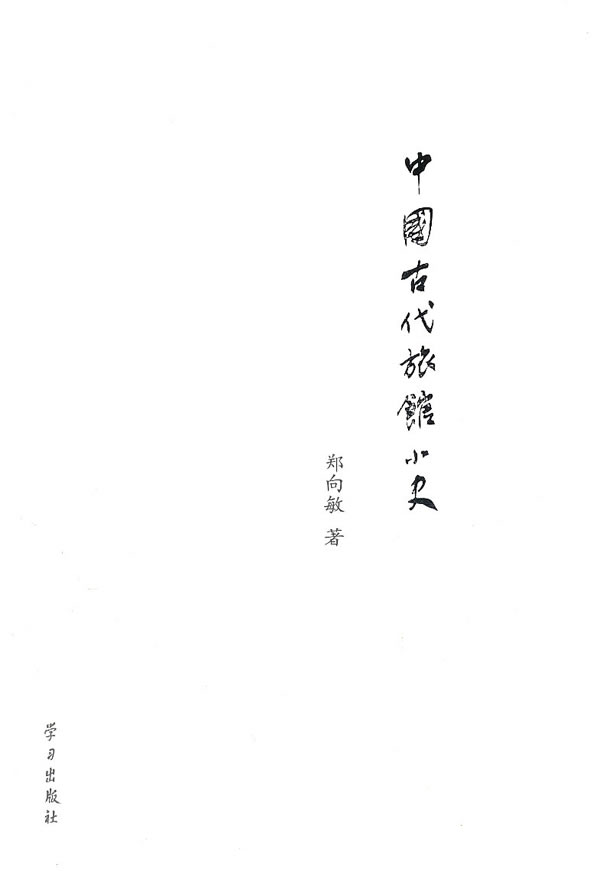 中國古代旅館小史
郑向敏 著
学习出版社